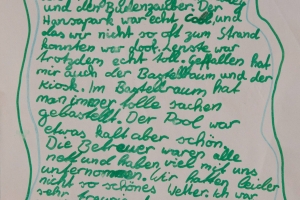 und der Budenzauber. Der
Hansapark war echt cool, und
das wir nicht so oft zum Strand
konnten war doof. Lenste war
trotzdem echt toll. Gefallen hat
mir auch der Bastelraum und der
Kiosk. Im Bastelraum hat
man immer tolle sachen
gebastelt. Der Pool war
etwas kalt aber schön.
Die Betreuer waren alle
nett und haben viel mit uns
unternommen. Wir hatten leider
nicht so schönes Wetter. Ich war
sehr traurig